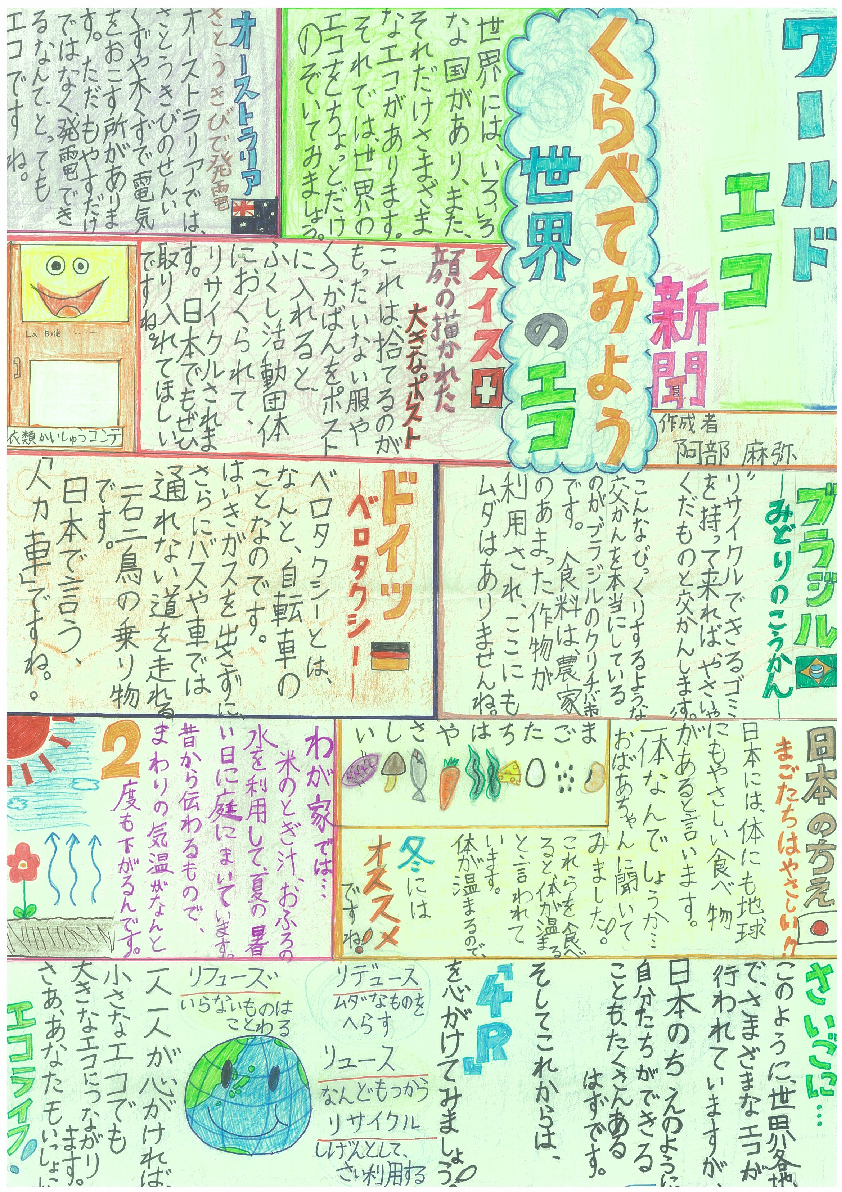 ワールド
エコ
新聞
くらべてみよう
世界のエコ
作成者
阿部 麻弥
世界には、いろいろ
な国があり、また、
それだけさまざま
なエコがあります。
それでは世界の
エコをちょっとだけ
のぞいてみましょう。
オーストラリア
さとうきびで発電
オーストラリアでは、
さとうきびのせんい
くずや木くずで電気
をおこす所がありま
す。ただもやすだけ
ではなく発電でき
るなんて、とっても
エコですね。
スイス
顔の描かれた
大きなポスト
これは捨てるのが
もったいない服や
くつ、かばんをポスト
に入れると、
ふくし活動団体
におくられて、
リサイクルされま
す。日本でもぜひ
取り入れてほしい
ですね。
衣類かいしゅうコンテ
ブラジル
みどりのこうかん
リサイクルできるゴミ
を持って来れば、やさいや
くだものと交かんします。
こんなびっくりするような
交かんを本当にしている
のが、ブラジルのクリチバ市
です。食料は、農家
のあまった作物が
利用され、ここにも
ムダはありませんね。
ドイツ
ベロタクシー
ベロタクシーとは、
なんと、自転車の
ことなのです。
はいきガスを出さずに、
さらにバスや車では
通れない道を走れる
一石二鳥の乗り物
です。
日本で言う、
「人力車」ですね。
日本のちえ
まごたちはやさしい?!
日本には、体にも地球
にもやさしい食べ物
があると言います。
一体なんでしょうか…
おばあちゃんに聞いて
みました。
まごたちはやさしい
これらを食べ
ると、体が温まる
と言われて
います。
体が温まるので、
冬には
オススメ
ですね!
わが家では…
米のとぎ汁、おふろの
水を利用して夏の暑
い日に庭にまいています。
昔から伝わるもので、
まわりの気温がなんと
2度も下がるんです。
さいごに…
このように、世界各地
で、さまざまなエコが
行われていますが、
日本のちえのように
自分たちができる
こともたくさんある
はずです。
そしてこれからは、
「4R」
を心がけてみましょう。
リデュース
ムダなものを
へらす
リユース
なんどもつかう
リサイクル
しげんとして、
さい利用する
リフューズ
いらないものは
ことわる
一人一人が心がければ、
小さなエコでも
大きなエコにつながり
ます。
さぁ、あなたもいっしょに
エコライフ!